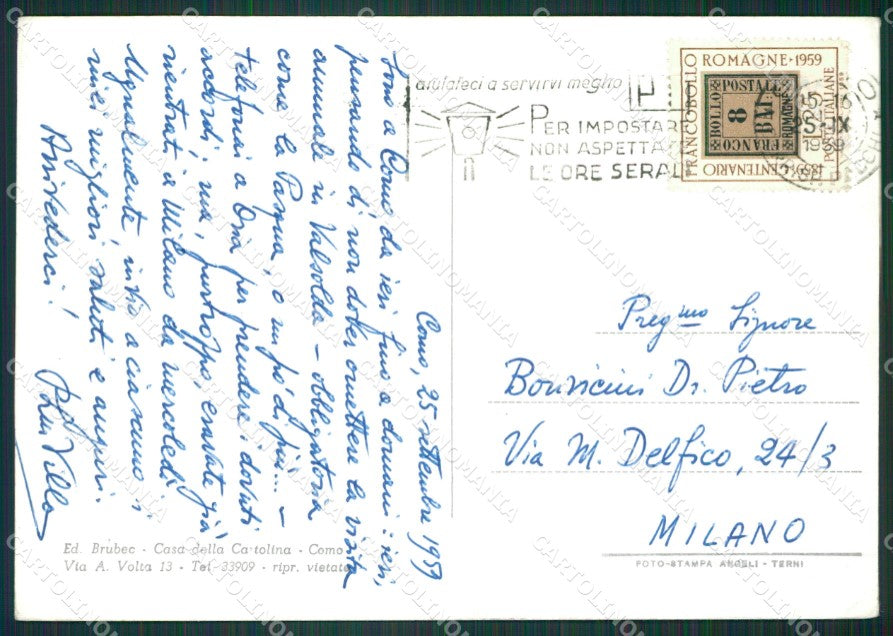 Como, 25 settembre 1959
Sono a Como da ieri fino a domani: ieri,
pensando di non dover omettere la visita
annuale in Valsolda - obbligatoria
come la Pasqua, o un po' di più... -
telefonai a Oria per prendere i dovuti
accordi: ma, purtroppo, eravate già
rientrati a Milano da mercoledì.
Ugualmente, invio a ciascuno i
miei migliori saluti e auguri.
Arrivederci!
Villa
Ed. Brubec - Casa della Cartolina - Como
Via A. Volta 13 - Tel 33909 - ripr. vietata
aiutateci a servirvi meglio
PER IMPOSTARE
NON ASPETTATE
LE ORE SERALI
FRANCOBOLLO ROMAGNE·1959
POSTE ITALIANE
CENTENARIO
BOLLO POSTALE
8
BAI
FRANCO
ROMAGNE
15-16
25-IX
1959
Preg.mo Signore
Bonvicini Dr. Pietro
Via M. Delfico, 24/3
MILANO
FOTO-STAMPA ANGELI - TERNI
CARTOLINOMANIA